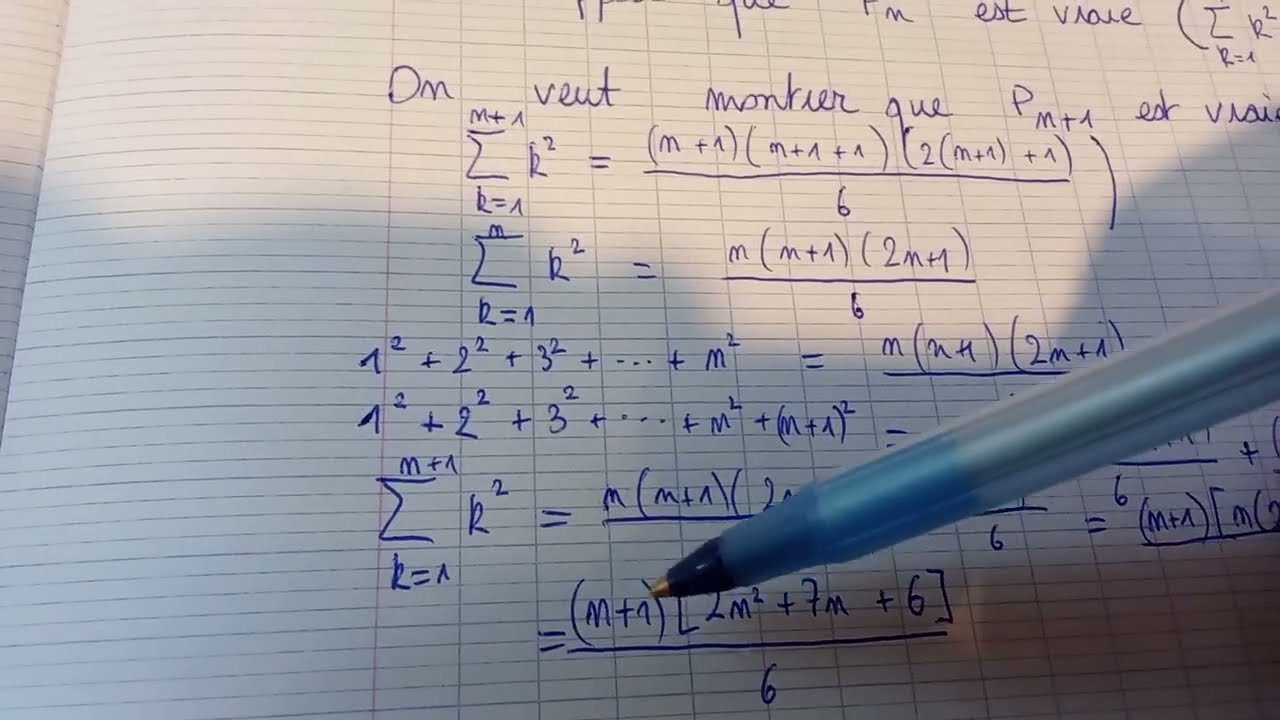 que Pₙ est vraie (∑ₖ₌₁ k²
On veut montrer que Pₙ₊₁ est vraie
∑ₖ₌₁ⁿ⁺¹ k² = (n+1)(n+1+1)(2(n+1)+1)/6 )
∑ₖ₌₁ⁿ k² = n(n+1)(2n+1)/6
1² + 2² + 3² + ... + n² = n(n+1)(2n+1)
1² + 2² + 3² + ... + n² + (n+1)² = /6 + (
∑ₖ₌₁ⁿ⁺¹ k² = n(n+1)(2n /6 = (n+1)[n(2
= (n+1)[2n² + 7n + 6]/6